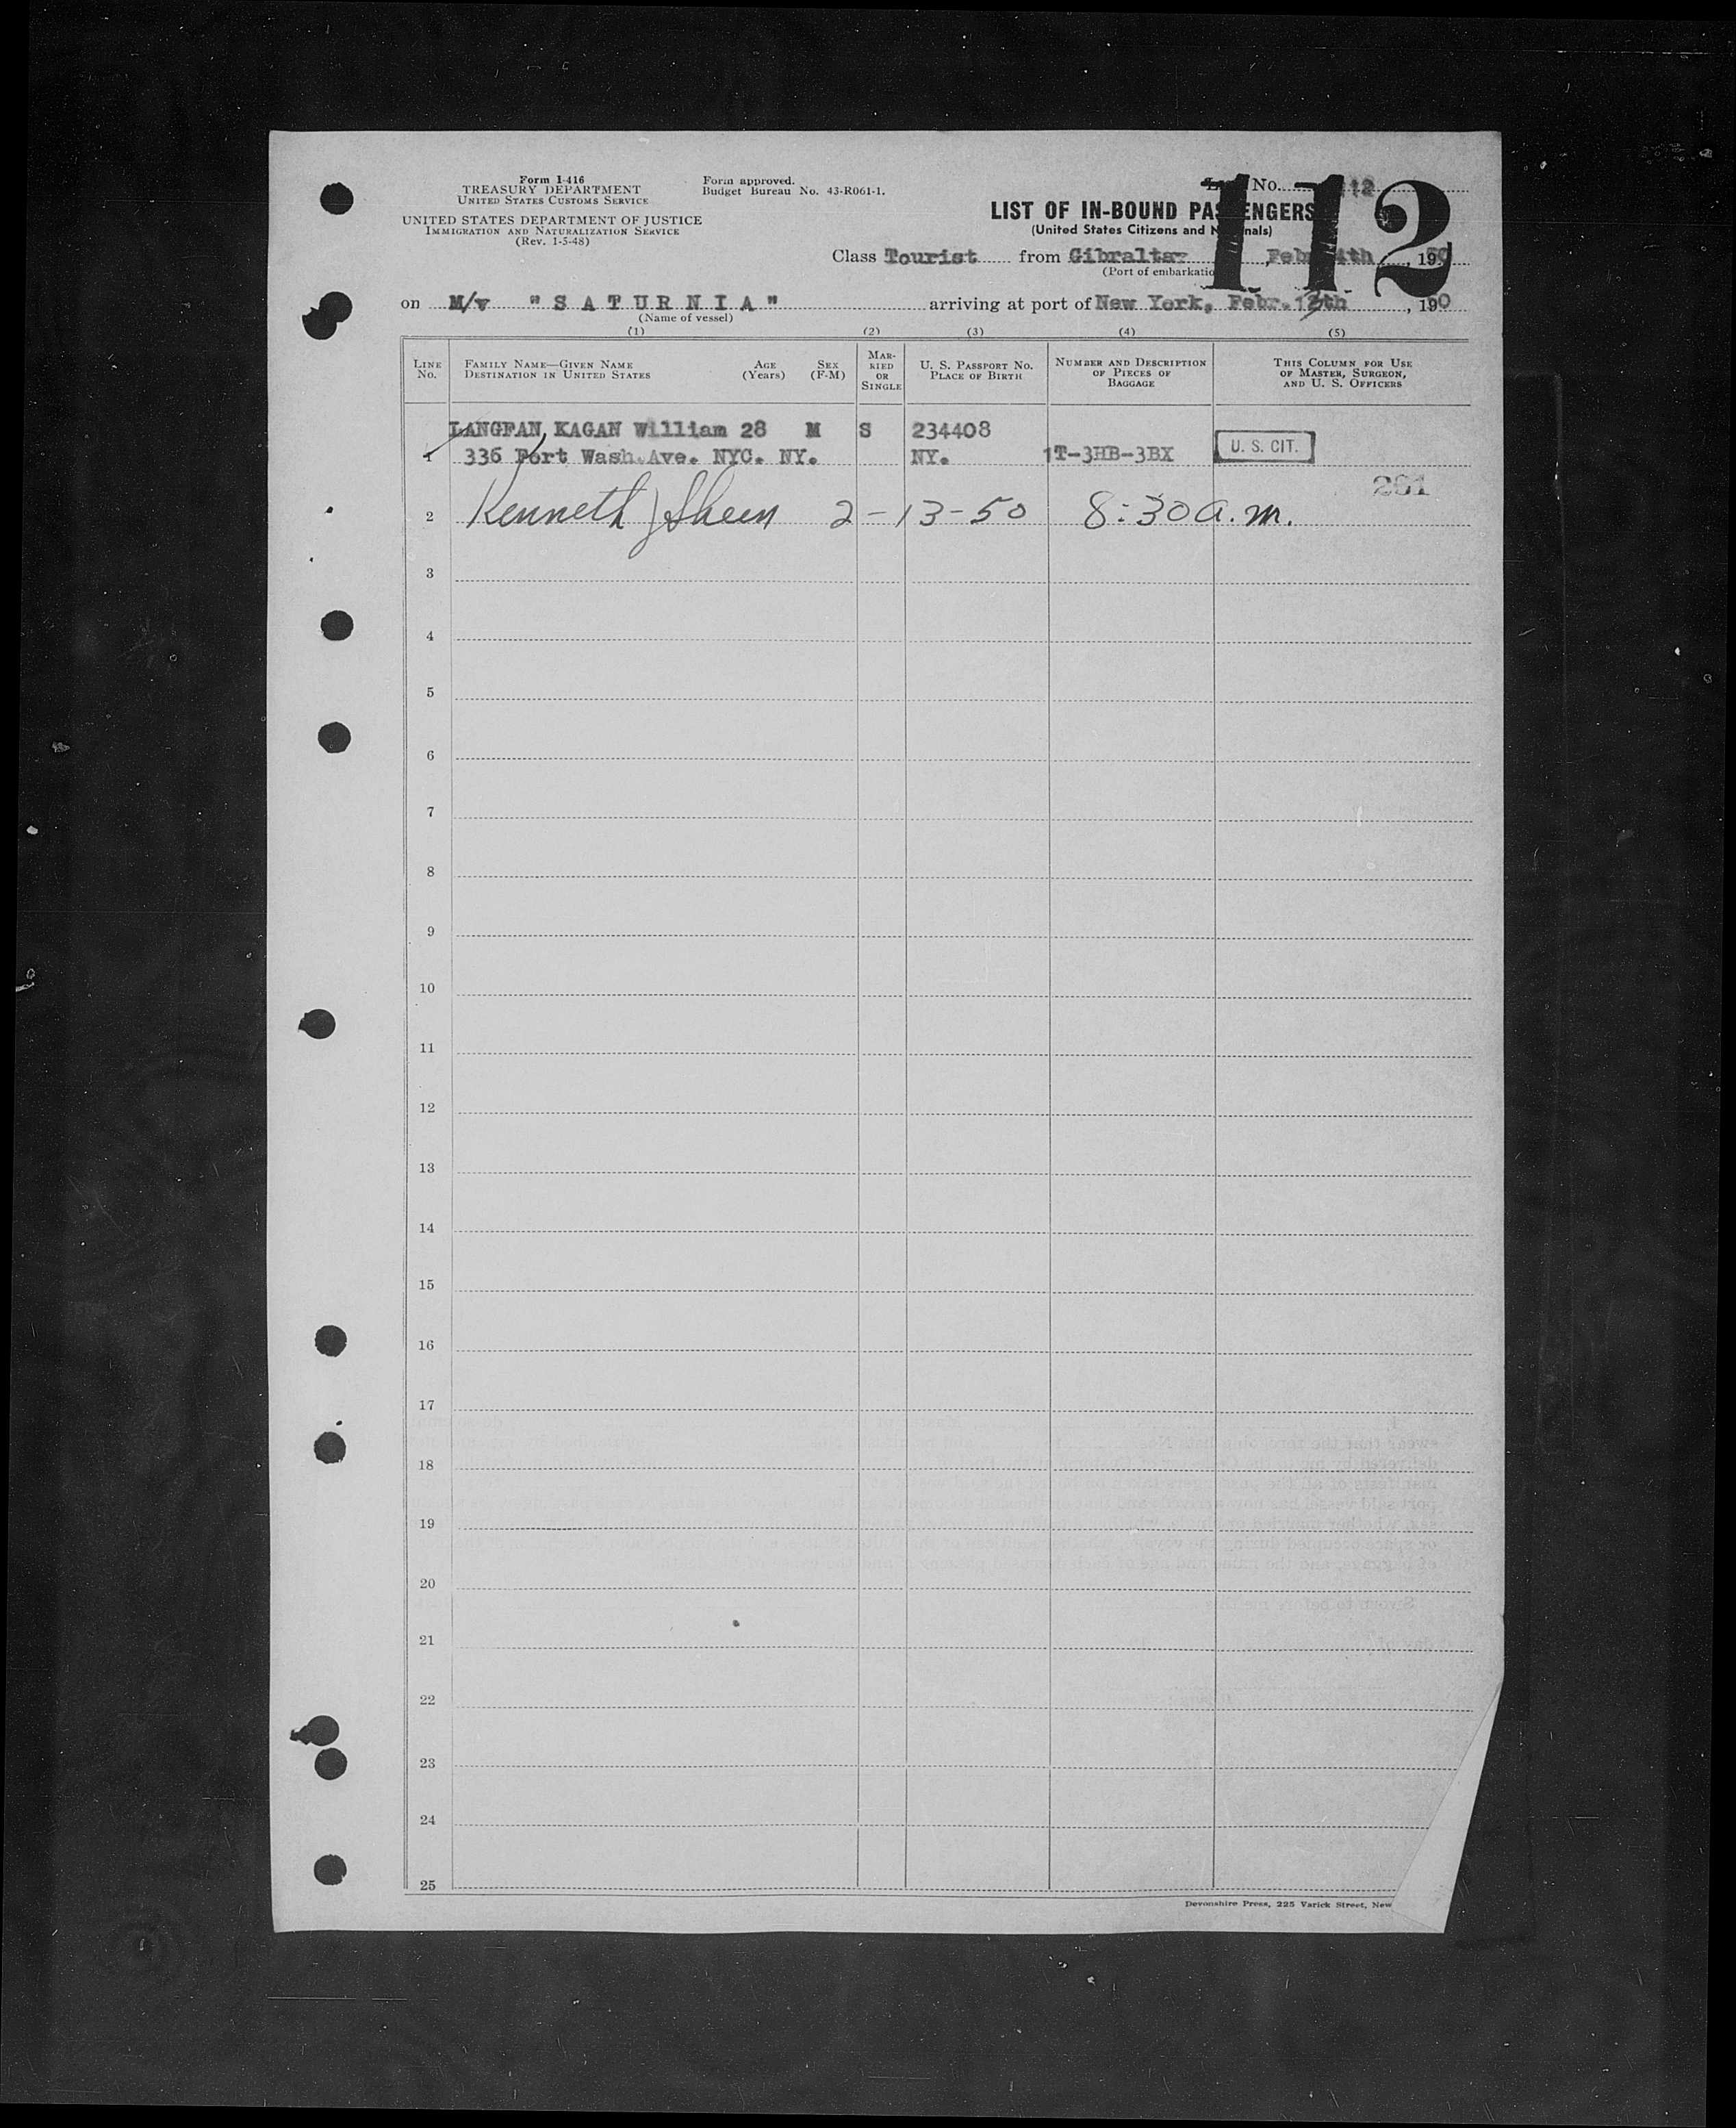 Form I-416
TREASURY DEPARTMENT
UNITED STATES CUSTOMS SERVICE
UNITED STATES DEPARTMENT OF JUSTICE
IMMIGRATION AND NATURALIZATION SERVICE
(Rev. 1-5-48)
Form approved.
Budget Bureau No. 43-R061-1.
No. 12
112
LIST OF IN-BOUND PASSENGERS
(United States Citizens and Nationals)
Class Tourist from Gibraltar, Febr. 4th, 1950
(Port of embarkation)
on M/v "SATURNIA" arriving at port of New York, Febr. 13th, 190
(Name of vessel)
(1) (2) (3) (4) (5)
LINE No.
FAMILY NAME—GIVEN NAME
DESTINATION IN UNITED STATES
AGE (Years)
SEX (F-M)
MARRIED OR SINGLE
U. S. PASSPORT NO.
PLACE OF BIRTH
NUMBER AND DESCRIPTION OF PIECES OF BAGGAGE
THIS COLUMN FOR USE OF MASTER, SURGEON, AND U. S. OFFICERS
LANGFAN, KAGAN William 28 M S 234408
1 336 Fort Wash.Ave. NYC. NY. NY. 1T-3HB-3BX U. S. CIT.
261
2 Kenneth J Sheen 2-13-50 8:30 a.m.
3
4
5
6
7
8
9
10
11
12
13
14
15
16
17
18
19
20
21
22
23
24
25
Devonshire Press, 225 Varick Street, New